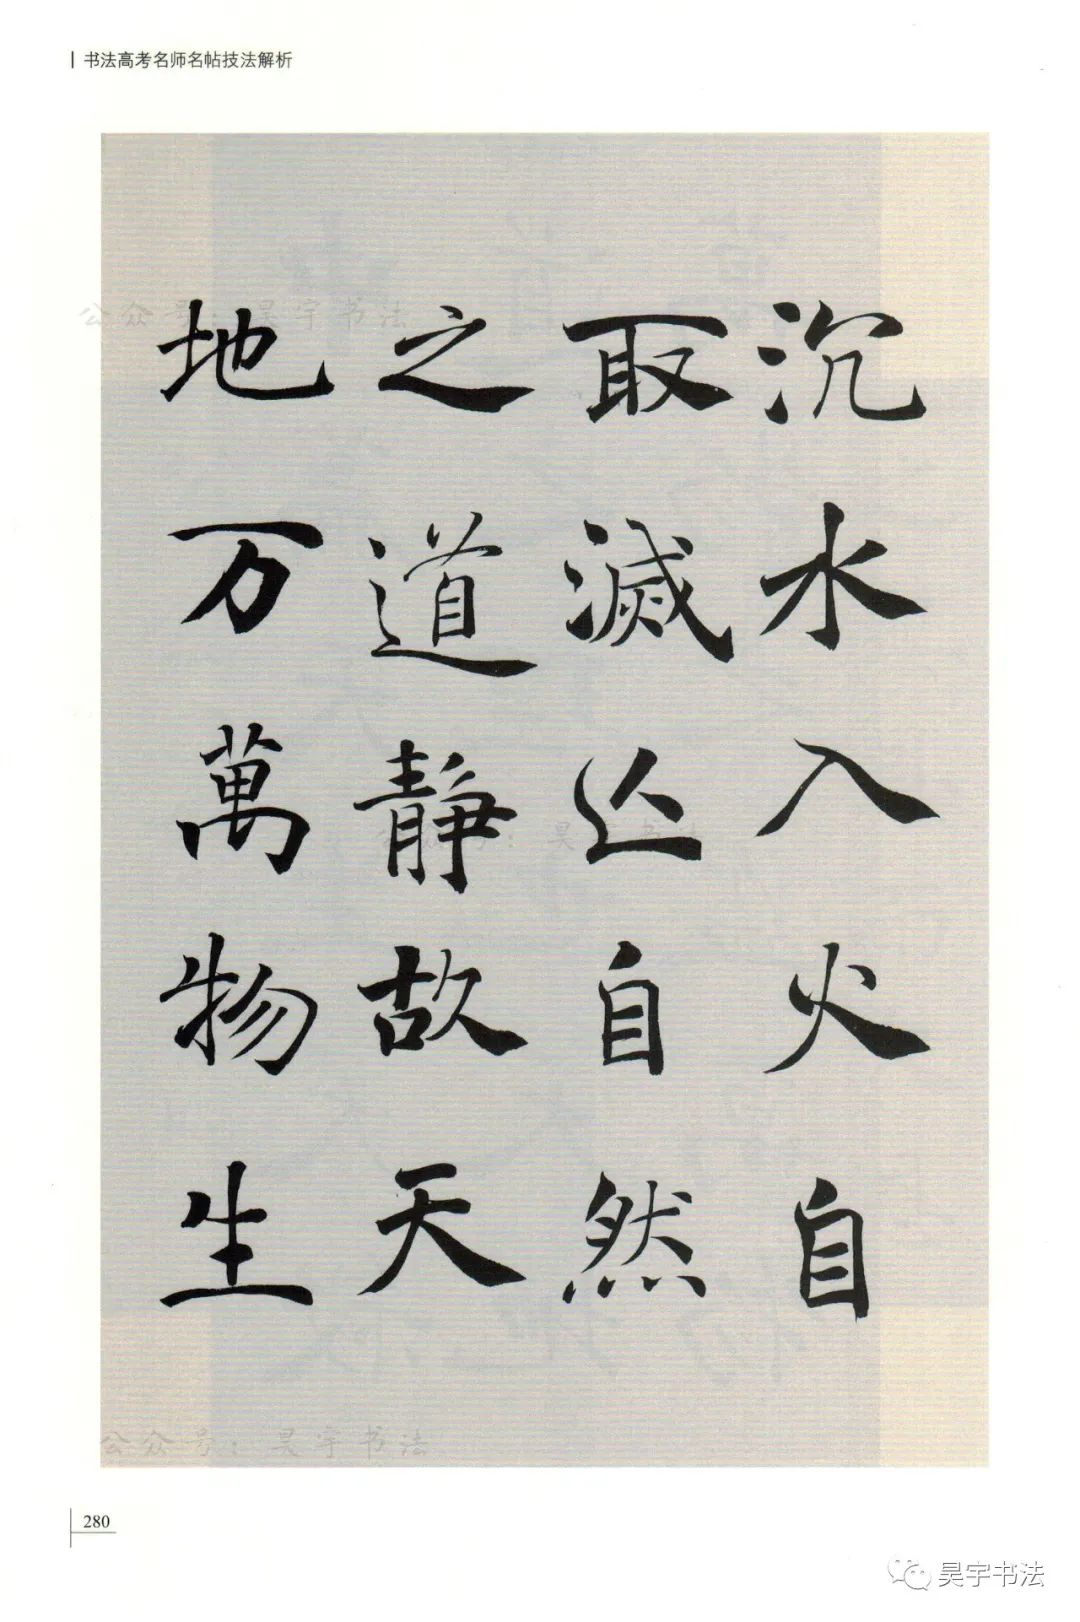 书法高考名师名帖技法解析
沉水入火自
取滅亾自然
之道静故天
地万萬物生
公众号：昊宇书法
公众号：昊宇书法
公众号：昊宇书法
280
昊宇书法